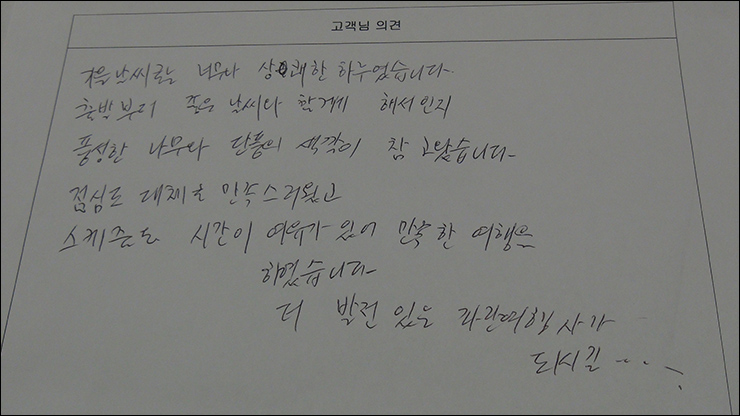 고객님 의견
겨울날씨로는 너무나 상쾌한 하루였습니다.
출발부터 좋은 날씨와 함께 해서인지
풍성한 나무와 단풍의 색깔이 참 고왔습니다.
점심도 대체로 만족스러웠고
스케줄도 시간이 여유가 있어 만족한 여행을
하였습니다.
더 발전 있을 파란여행사가
되시길....